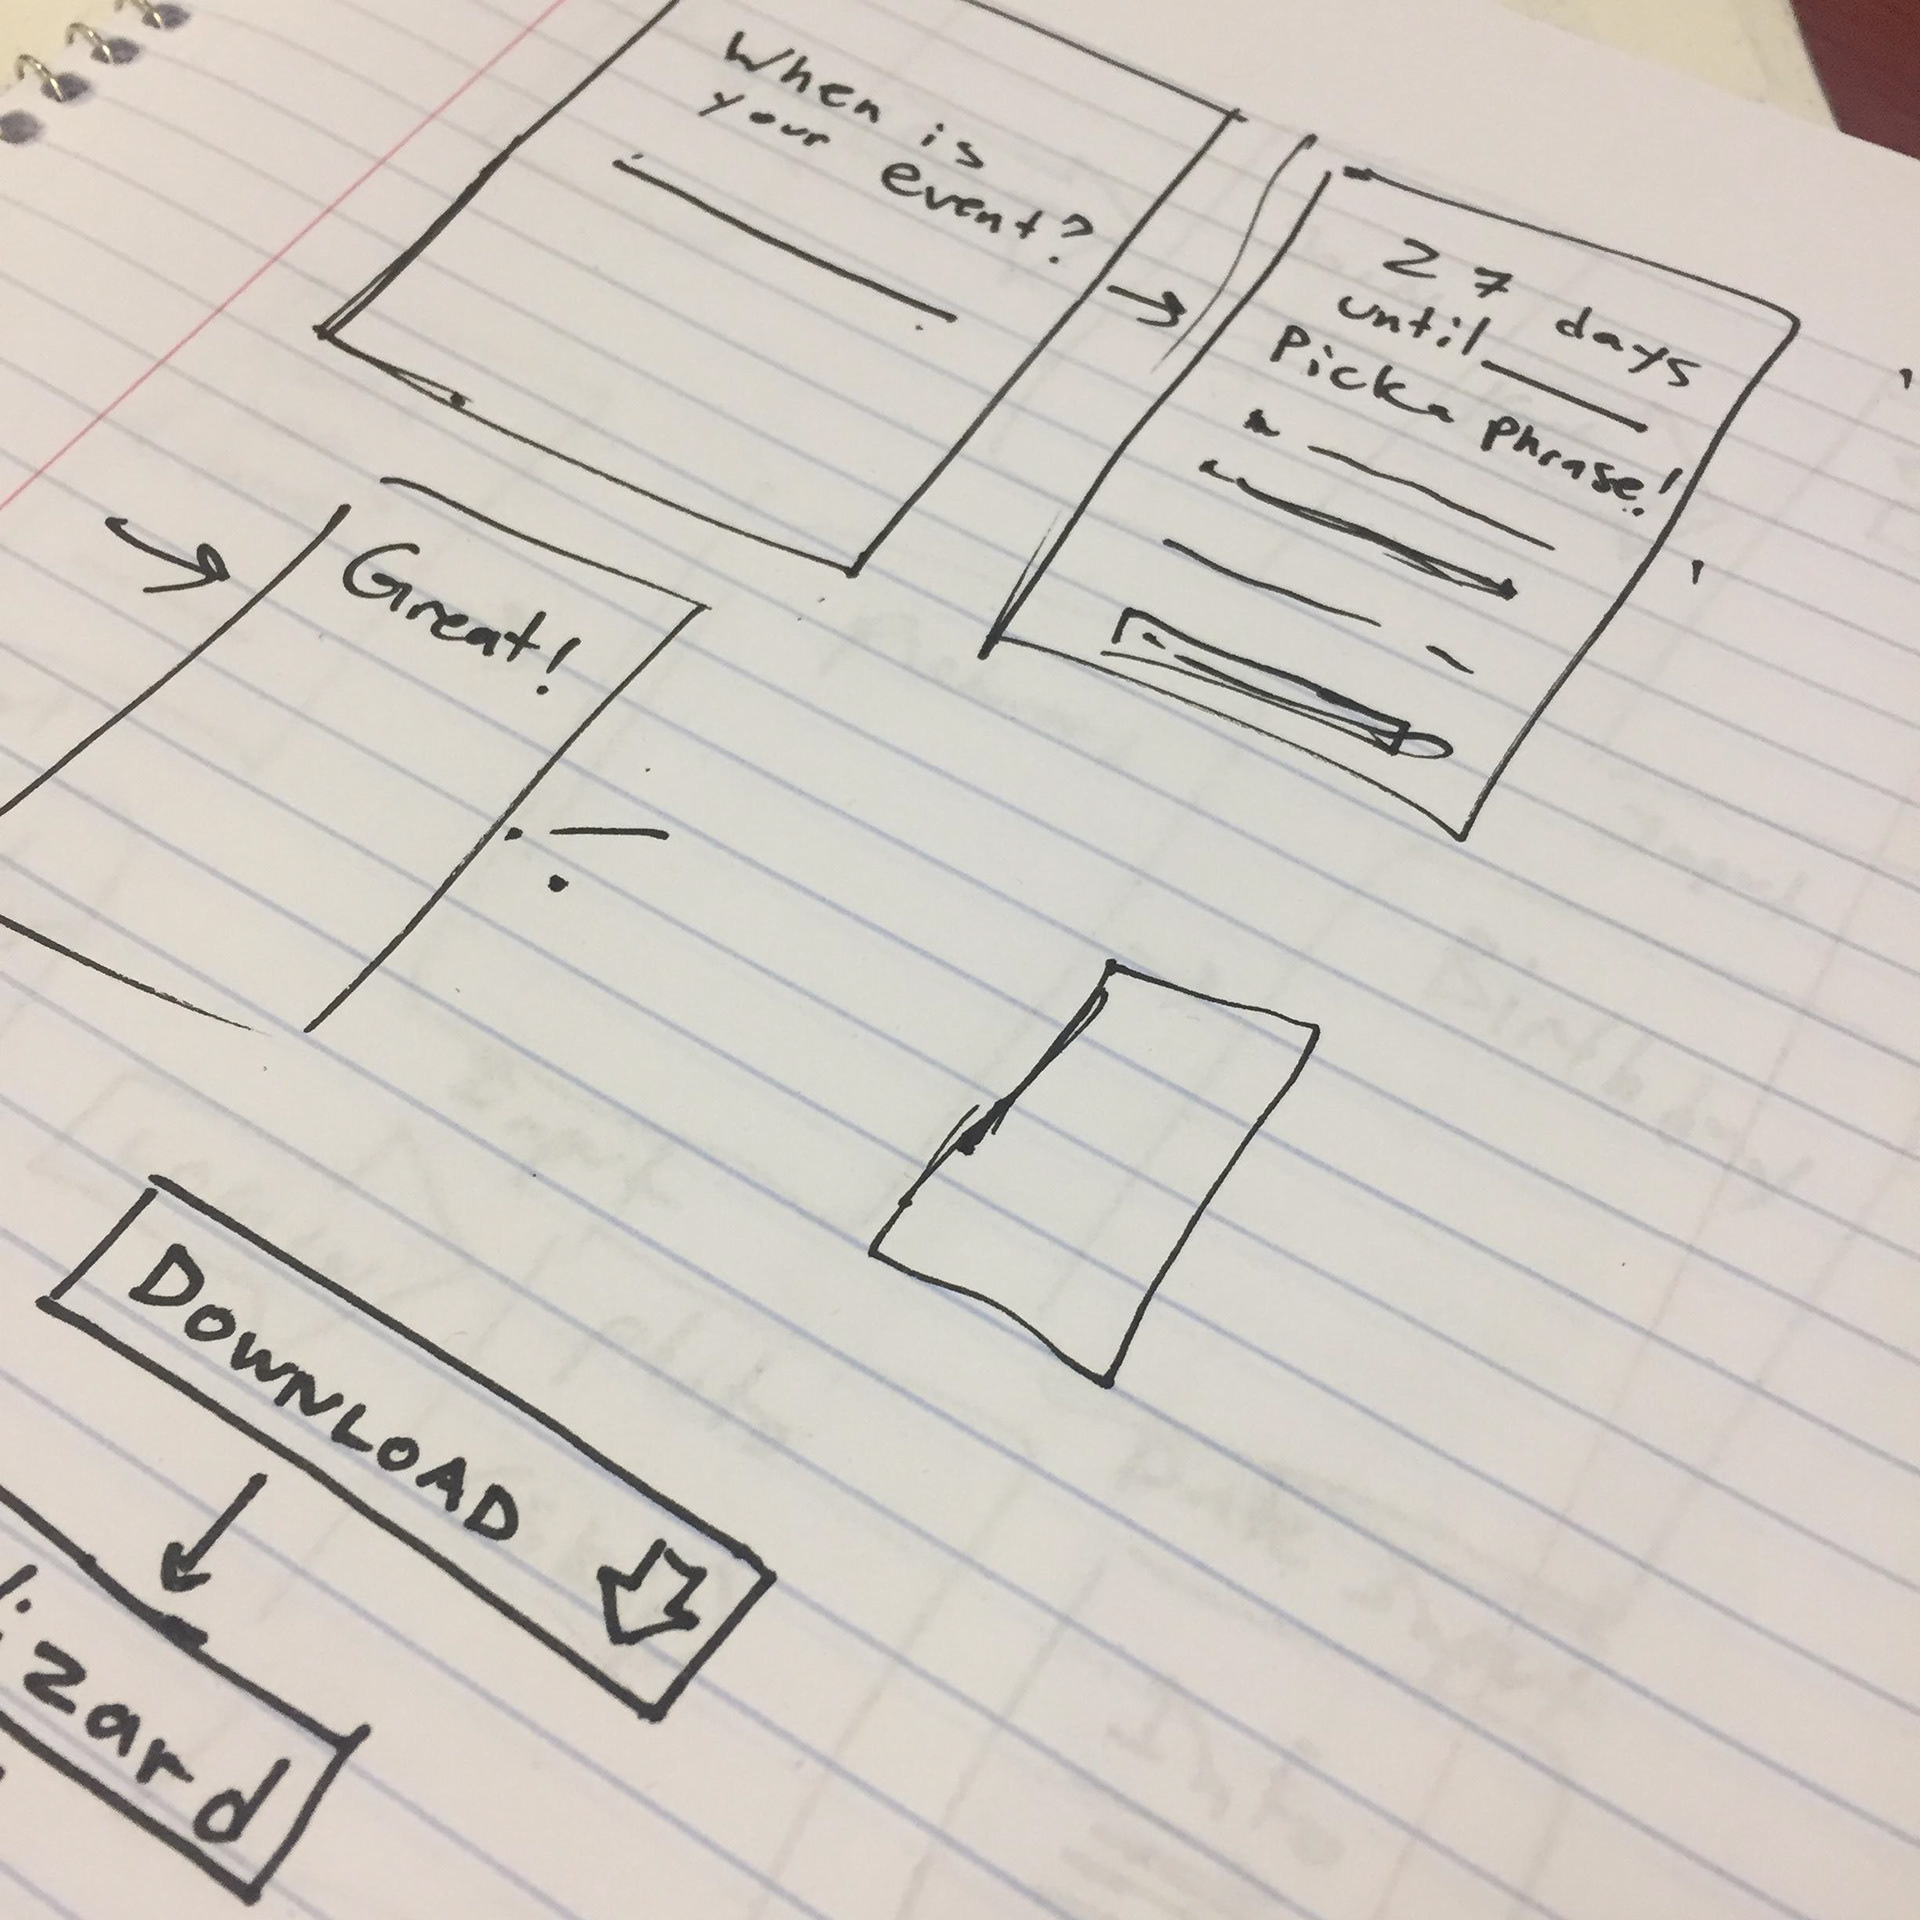 When is
your event?
27 days
until
Pick a phrase!
Great!
DOWNLOAD
izard